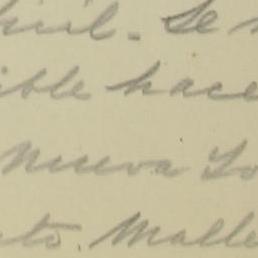 Se
ible hace
Nueva Yo
to. Malle